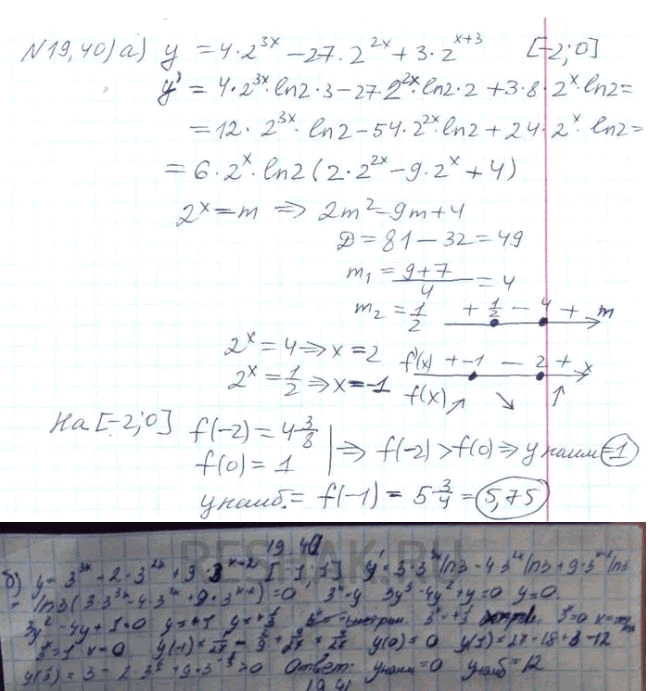 N19,40) а) y = 4·2^{3x} - 27·2^{2x} + 3·2^{x+3} [-2;0]
y' = 4·2^{3x}·ln2·3 - 27·2^{2x}·ln2·2 + 3·8·2^x·ln2 =
= 12·2^{3x}·ln2 - 54·2^{2x}·ln2 + 24·2^x·ln2 =
= 6·2^x·ln2(2·2^{2x} - 9·2^x + 4)
2^x = m ⇒ 2m² - 9m + 4
D = 81 - 32 = 49
m₁ = (9+7)/4 = 4
m₂ = 1/2 + 1/2 - 4 + m
2^x = 4 ⇒ x = 2 f'(x) + -1 - 2 + x
2^x = 1/2 ⇒ x = -1 f(x) ↗ ↘ ↑
На [-2;0] f(-2) = 4 3/8
f(0) = 1 ⇒ f(-2) > f(0) ⇒ y наим = 1
y наиб. = f(-1) = 5 3/4 = 5,75
19.40
б) y = 3^{3x} - 2·3^{2x} + 9·3^{x-2} [-1;1] y' = 3·3^{3x} ln3 - 4·3^{2x} ln3 + 9·3^{x-2} ln3
= ln3(3·3^{3x} - 4·3^{2x} + 9·3^{x-2}) = 0 3^x = y 3y³ - 4y² + y = 0 y = 0
3y² - 4y + 1 = 0
3^x = 1 x = 0 y(0) = 0 y(1) = 27 - 18 + 3 = 12
Ответ: y наим = 0 y наиб = 12
19.41